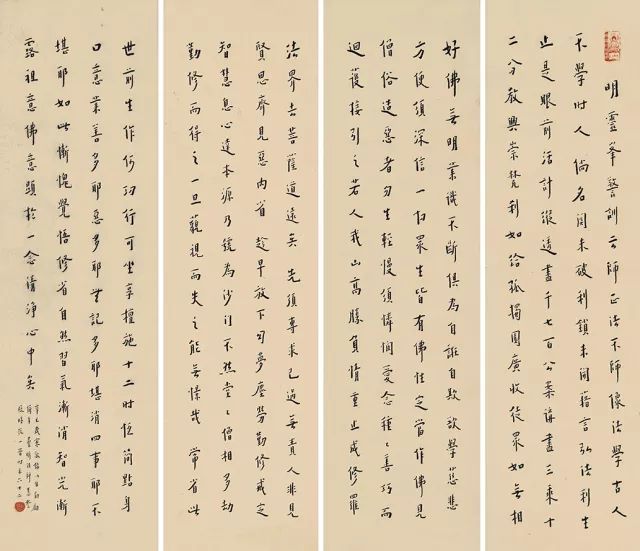 明靈峯警訓云師正法不師像法學古人
不學時人倘名関未破利鎖未開藉言弘法利生
止是眼前活計縱透盡千七百公案講盡三乘十
二分教興崇梵剎如給孤獨園廣收徒眾如無相
好佛無明業識不斷俱為自誑自欺欲學慈悲
方便須深信一切眾生皆有佛性定當作佛見
僧俗造惡者勿生輕慢須憐憫愛念種〻善巧而
迴護接引之若人我山高勝負情重止成修羅
法界去菩薩道遠矣先須專求己過毋責人非見
賢思齊見惡內省趁早放下夢塵勞勤修戒定
智慧息心達本源乃號為沙門不然堂〻僧相多劫
勤修而得之一旦藐視而失之能無懍哉常省此
世前生作何功行可坐享檀施十二時簡點身
口意業善多耶惡多耶無記多耶堪消四事耶不
堪耶如此慚愧覺悟修省自然習氣漸消智光漸
露祖意佛意顯於一念清淨心中矣